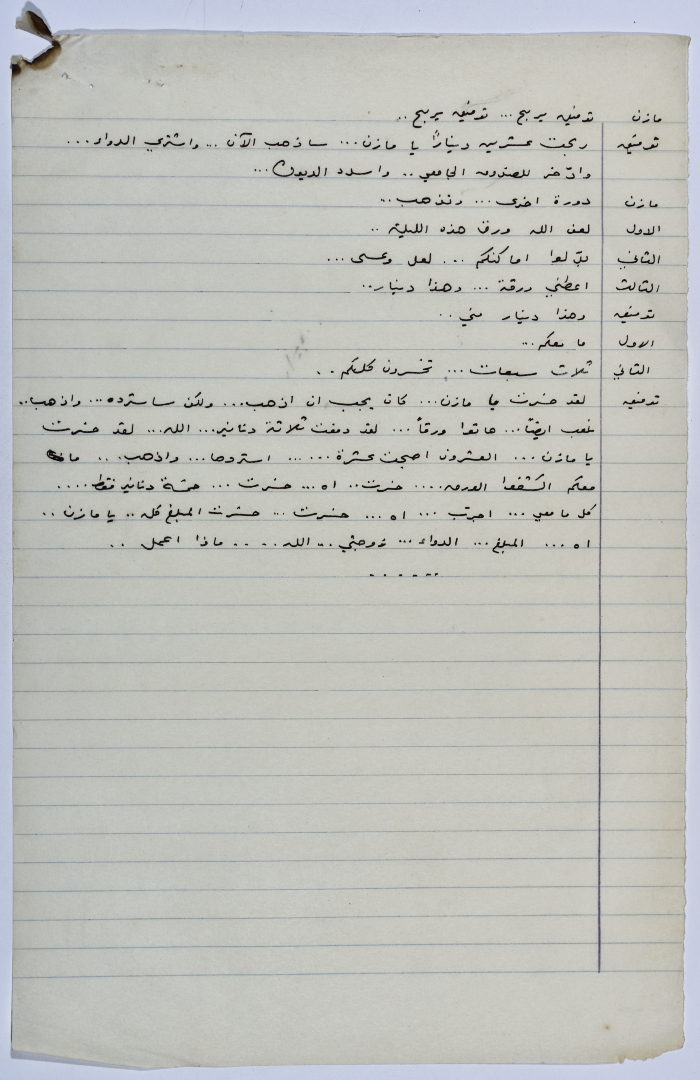 مازن توفيق يربح... توفيق يربح..
توفيق ربحت عشرين ديناراً يا مازن... ساذهب الآن... واشتري الدواء...
وادّخر للصندوق الجامعي.. واسدد الديون...
مازن دورة اخرى... وتذهب..
الاول لعن الله ورق هذه الليلة..
الثاني بدّلوا اماكنكم... لعل وعسى...
الثالث اعطني ورقة... وهذا دينار..
توفيق وهذا دينار مني..
الاول ما معكم...
الثاني ثلاث سبعات... تخسرون كلكم..
توفيق لقد خسرت يا مازن... كان يجب ان اذهب... ولكن ساسترده... واذهب..
نلعب ايضاً... هاتوا ورقاً... لقد دفعت ثلاثة دنانير... الله... لقد خسرت
يا مازن... العشرون اصبحت عشرة...... استردها... واذهب... ما
معكم اكشفوا الورق.... خسرت.. اه... خسرت... خمسة دنانير فقط....
كل ما معي... اجرب... اه... خسرت... خسرت المبلغ كله.. يا مازن..
اه... المبلغ... الدواء... زوجتي.. الله.... ماذا اعمل..
......